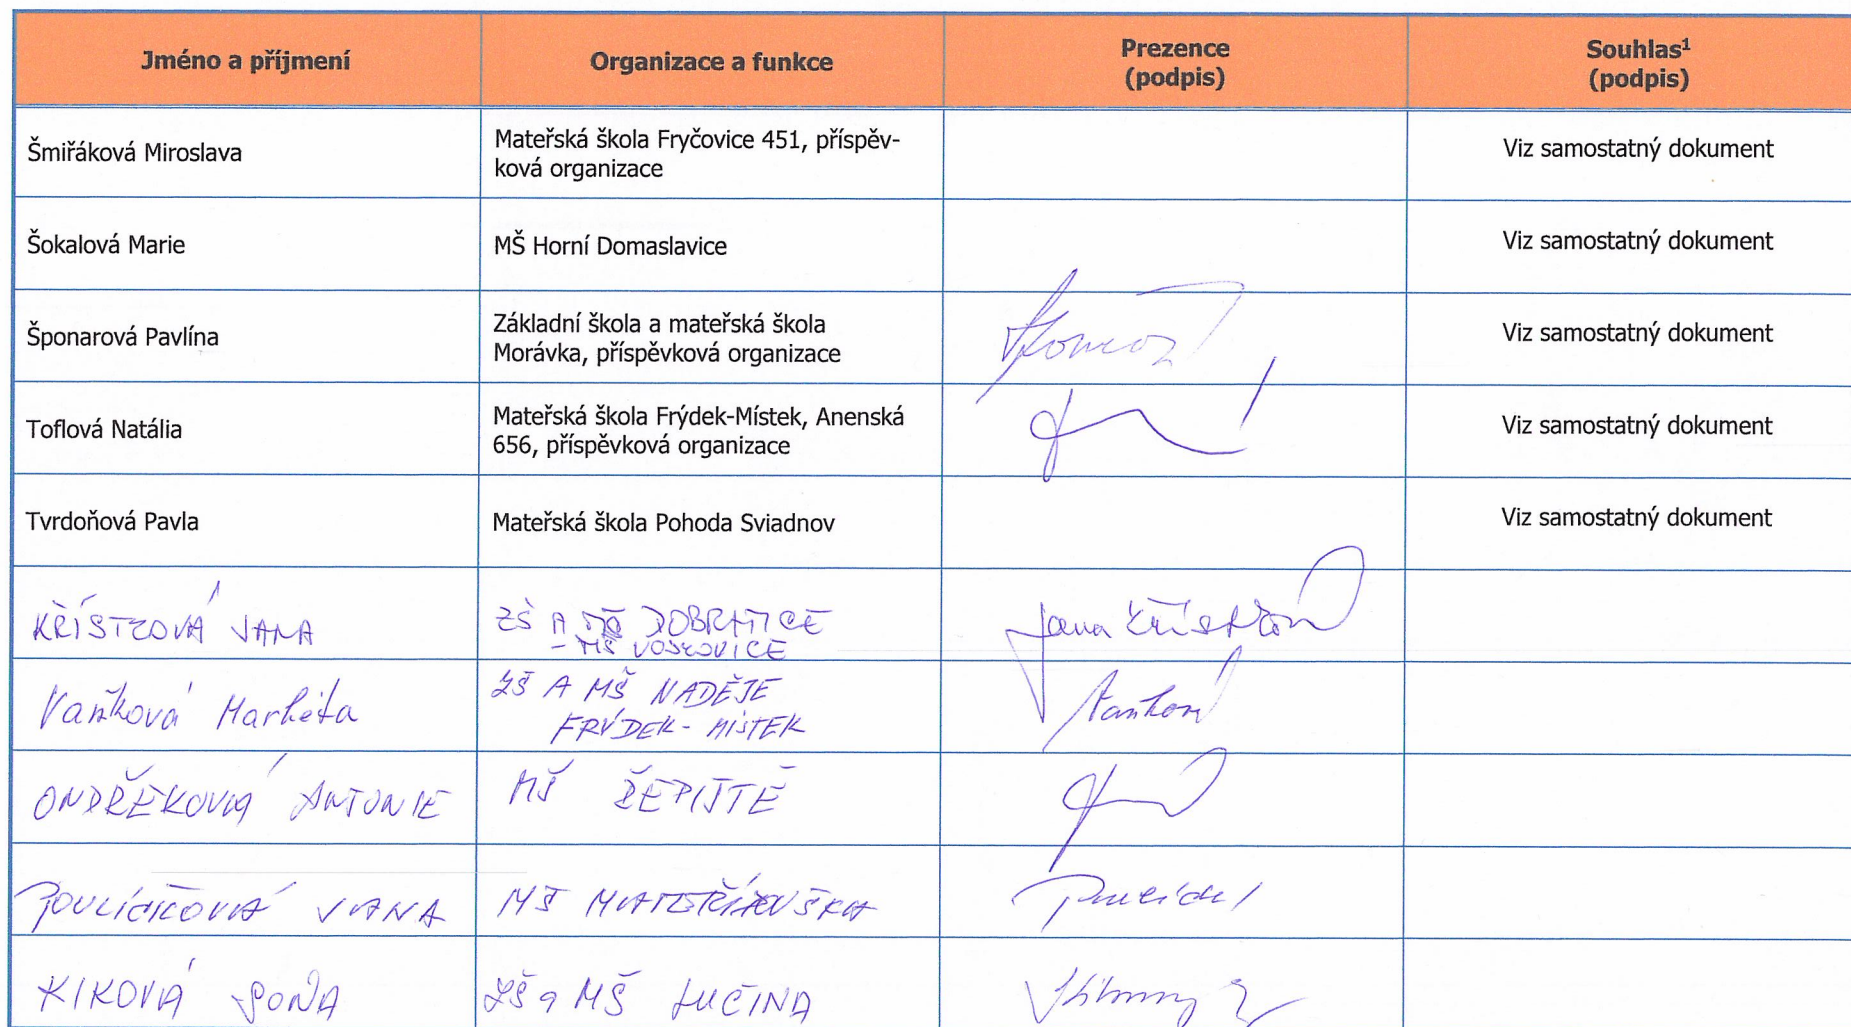 Jméno a příjmení
Organizace a funkce
Prezence
(podpis)
Souhlas¹
(podpis)
Šmiřáková Miroslava
Mateřská škola Fryčovice 451, příspěv-
ková organizace
Viz samostatný dokument
Šokalová Marie
MŠ Horní Domaslavice
Viz samostatný dokument
Šponarová Pavlína
Základní škola a mateřská škola
Morávka, příspěvková organizace
Viz samostatný dokument
Toflová Natália
Mateřská škola Frýdek-Místek, Anenská
656, příspěvková organizace
Viz samostatný dokument
Tvrdoňová Pavla
Mateřská škola Pohoda Sviadnov
Viz samostatný dokument
KŘÍSTKOVÁ JANA
ZŠ A MŠ DOBRATICE
- MŠ VOJKOVICE
Jana Křístková
Vaňková Markéta
ZŠ A MŠ NADĚJE
FRÝDEK-MÍSTEK
Vaňková
ONDŘEKOVÁ ANTONIE
MŠ ŘEPIŠTĚ
JANA
MŠ MATEŘÍDOUŠKA
KIKOVÁ SOŇA
ZŠ a MŠ LUČINA